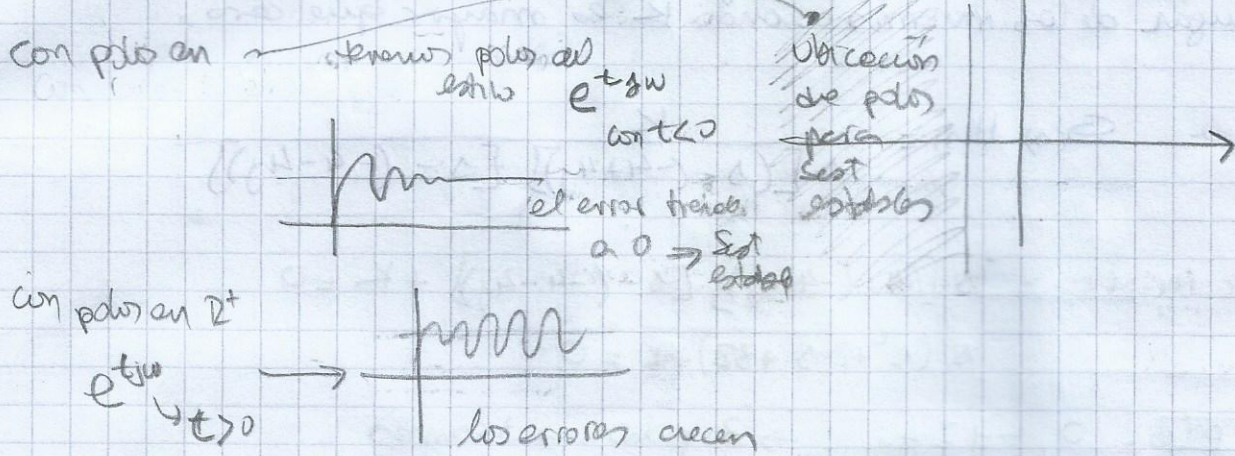 con polos en
tenemos polos del
estilo e^tjw
con t<0
Ubicación
de polos
para
sist
estables
el error tiende
a 0 ⇒ sist
estable
con polos en R+
e^tjw
t>0
los errores crecen